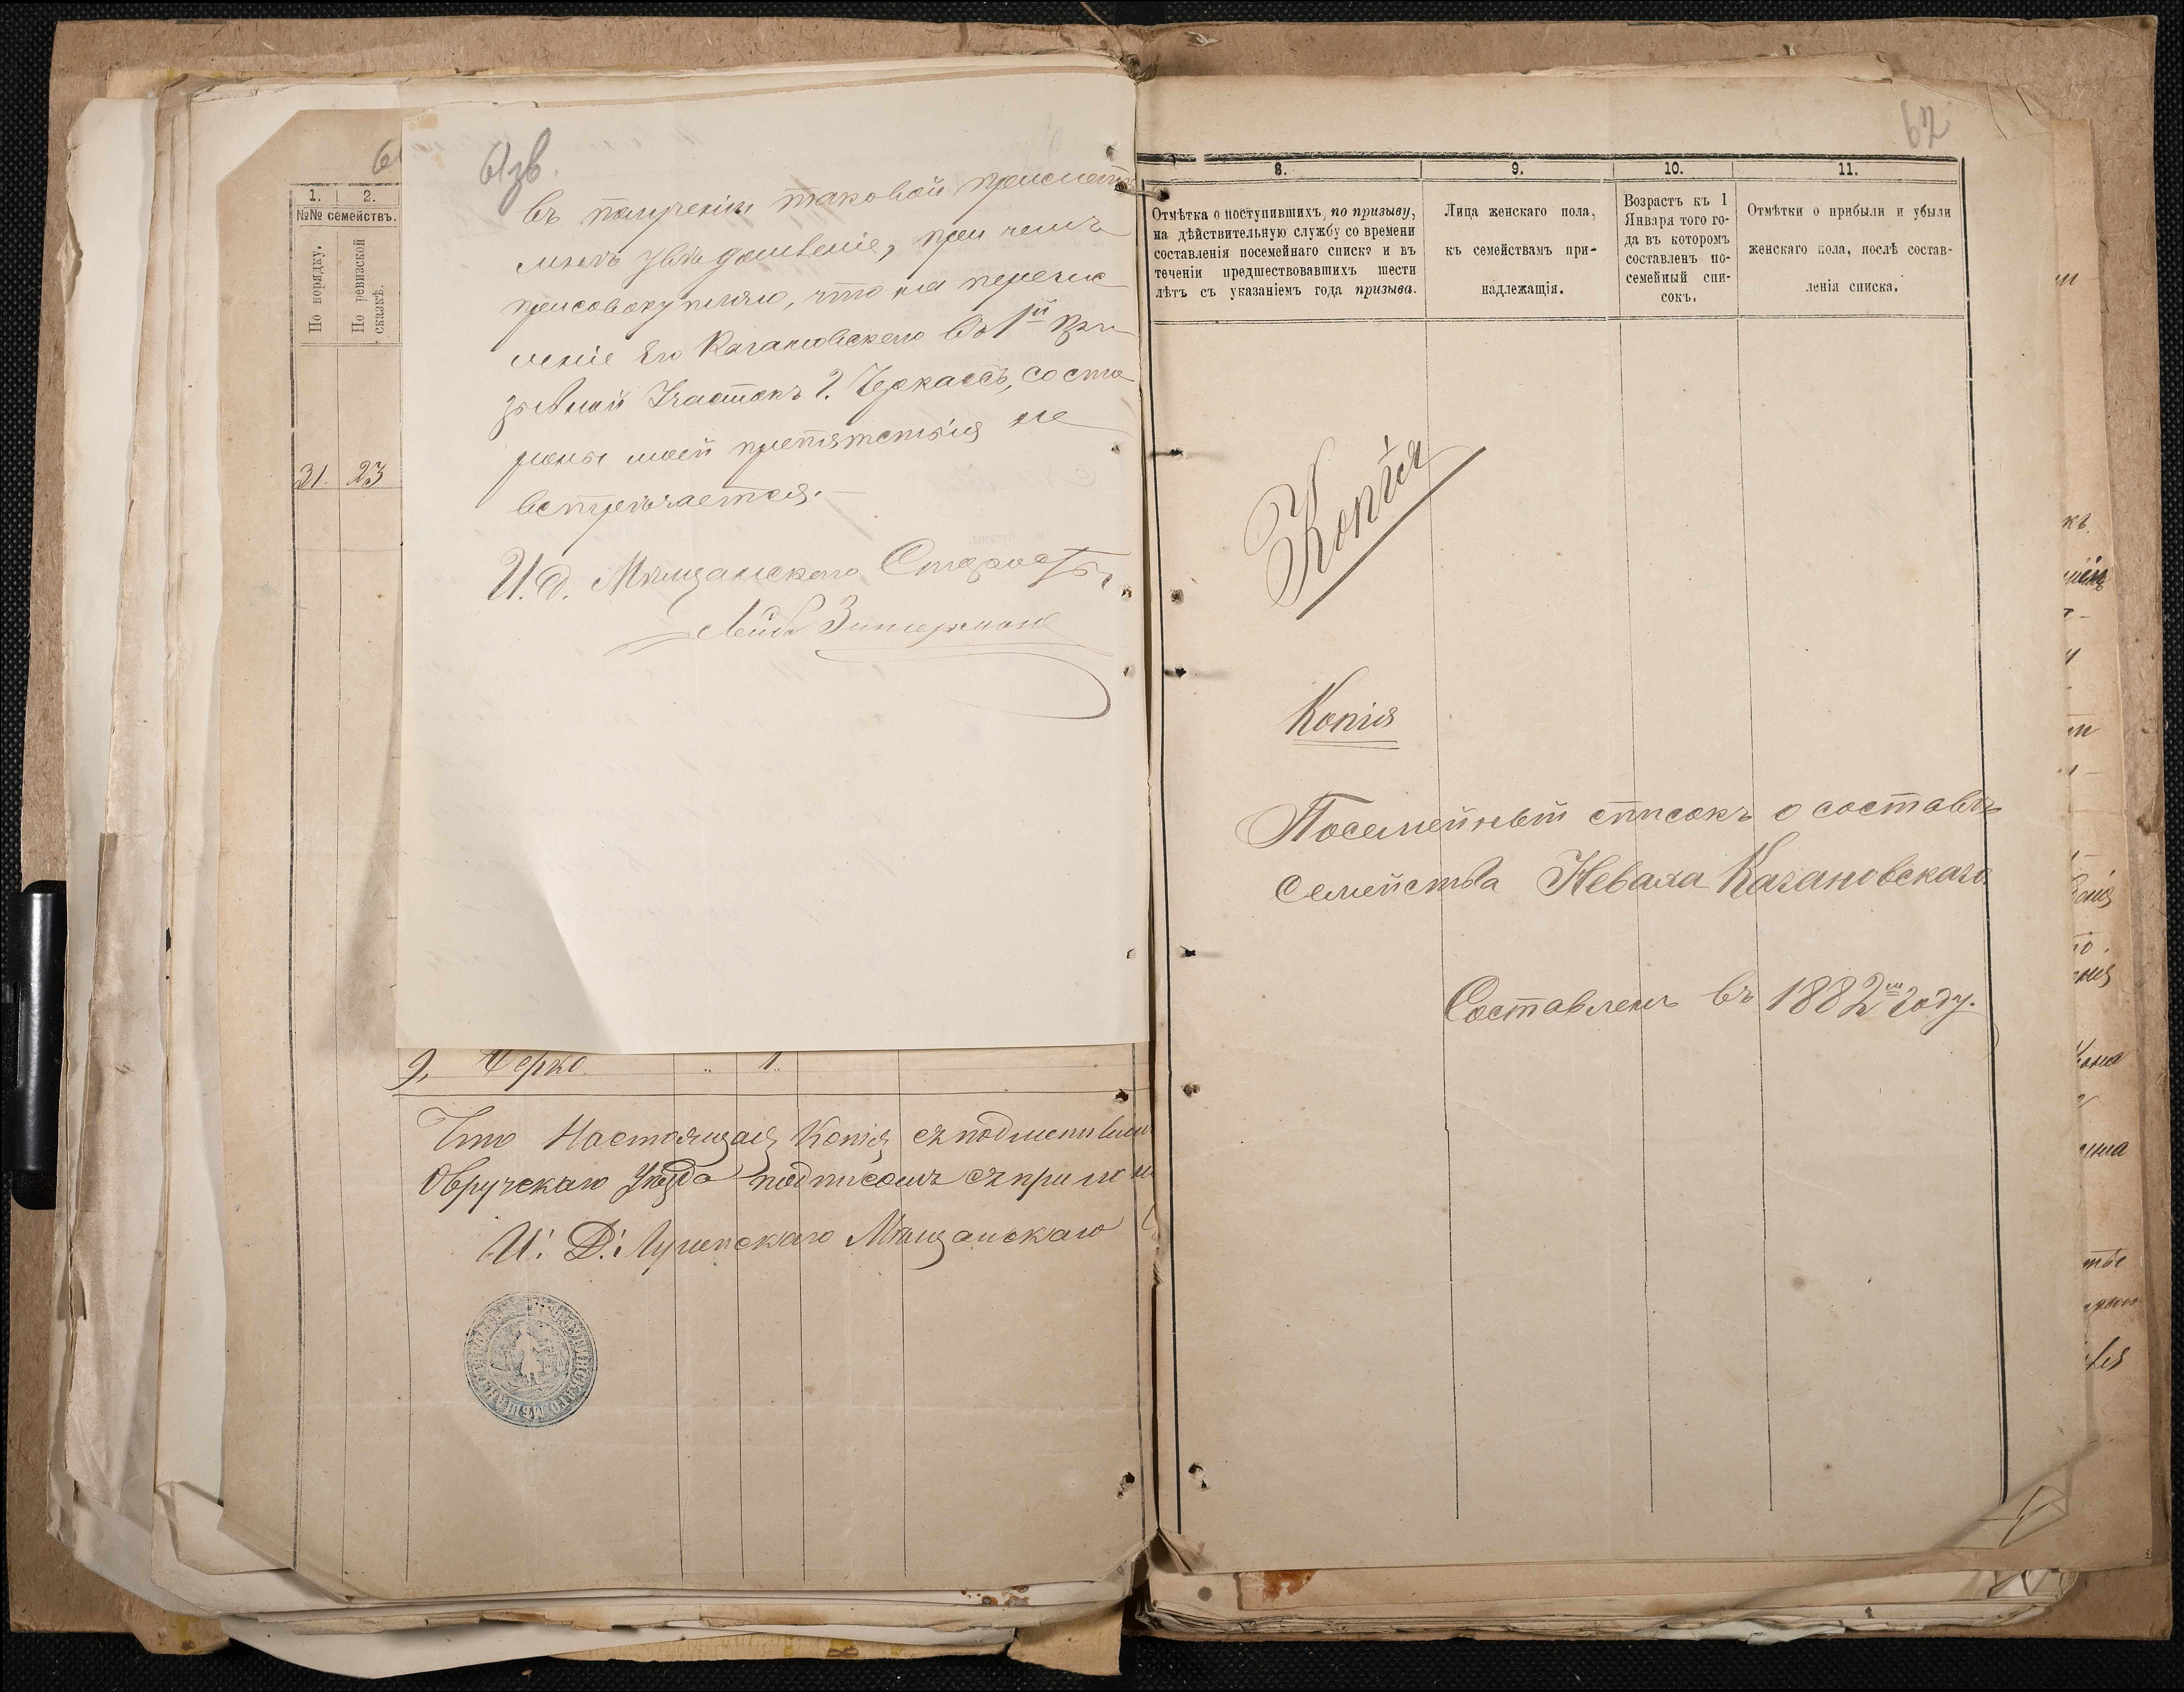 61зв.
въ полученіи таковой прислать
мнѣ увѣдомленіе, при чемъ
присовокупляю, что на перечис
леніе Его Качановскаго въ 1й при
зывной Участокъ г. Черкассъ, со сто
роны моей препятствія не
встрѣчается.—
И. д. Мѣщанскаго Старосты
Лейба Зитерманъ
6
1. 2.
№№ семействъ.
По порядку.
По ревизской сказкѣ.
31. 23
9, Берко „ 1.
Что Настоящая Копія съ подлинны
Овручскаго Уѣзда подписомъ съ прилож
И. Д. Мѣщанскаго
62
8. 9. 10. 11.
Отмѣтка о поступившихъ, по призыву,
на дѣйствительную службу со времени
составленія посемейнаго списка и въ
теченіи предшествовавшихъ шести
лѣтъ съ указаніемъ года призыва.
Лица женскаго пола,
къ семействамъ при-
надлежащія.
Возрастъ къ 1
Января того го-
да въ которомъ
составленъ по-
семейный спи-
сокъ.
Отмѣтки о прибыли и убыли
женскаго пола, послѣ состав-
ленія списка.
Копія
Копія
Посемейный списокъ о составѣ
Семейства Неваха Качановскаго
Составленъ въ 1882мъ году.